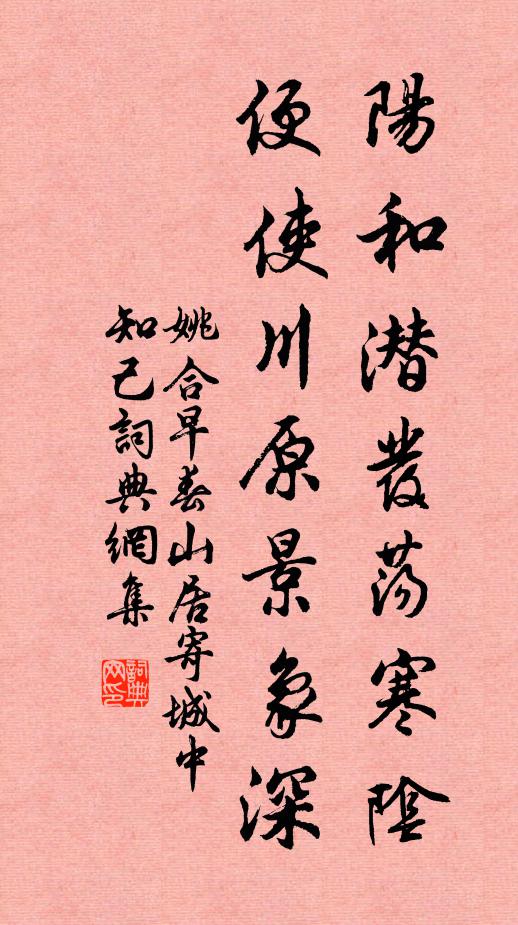 陽和潜發荡寒陰
便使川原景象深
姚合早春山居寄城中
知己詞典網集
詞典網印